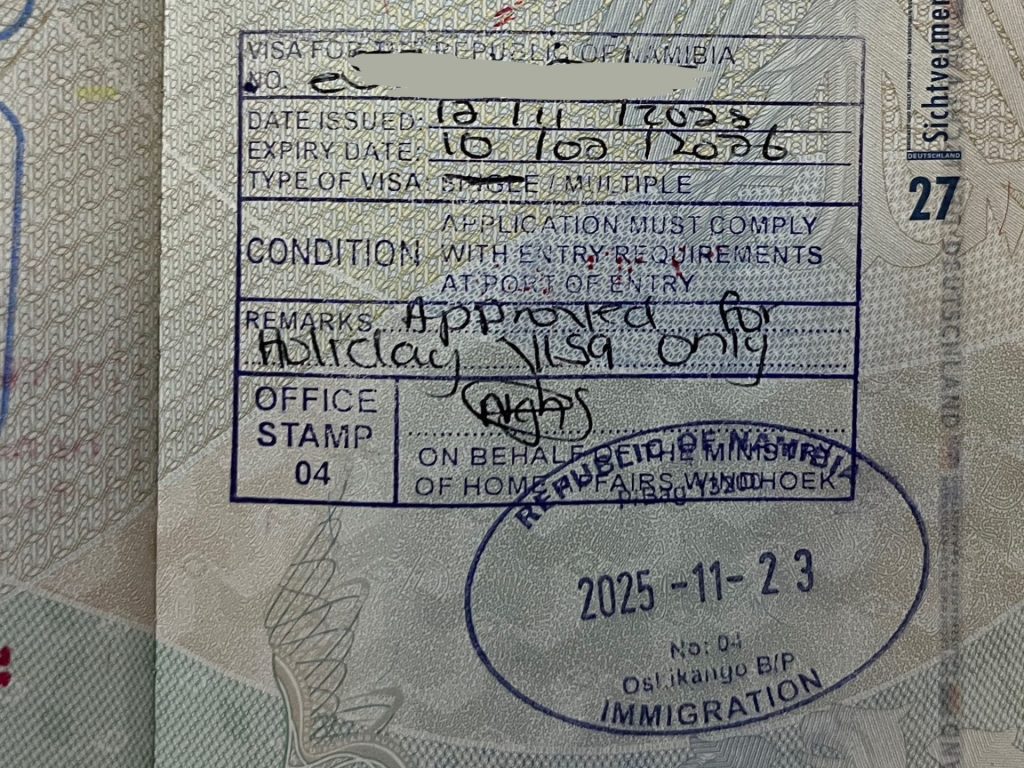 VISA FOR THE REPUBLIC OF NAMIBIA
NO.
DATE ISSUED: 12 /11 /2025
EXPIRY DATE: 10 /02 /2026
TYPE OF VISA: SINGLE / MULTIPLE
CONDITION
APPLICATION MUST COMPLY
WITH ENTRY REQUIREMENTS
AT PORT OF ENTRY
REMARKS Approved for
Holiday Visa only
OFFICE
STAMP
04
ON BEHALF OF THE MINISTRY
OF HOME AFFAIRS, WINDHOEK
REPUBLIC OF NAMIBIA
P/Bag 13200
2025 -11- 23
No: 04
Oshikango B/P
IMMIGRATION
DEUTSCHLAND
27